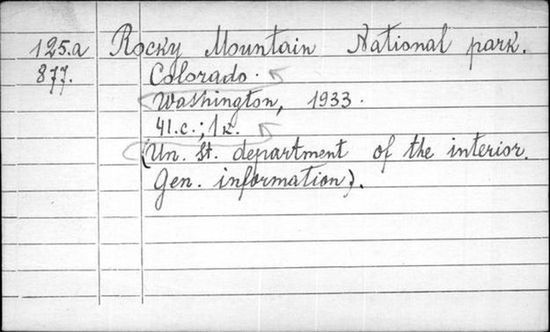 125.a Rocky Mountain National park.
877. Colorado.
Washington, 1933.
41.c.; 1 к.
(Un. St. department of the interior.
Gen. information).